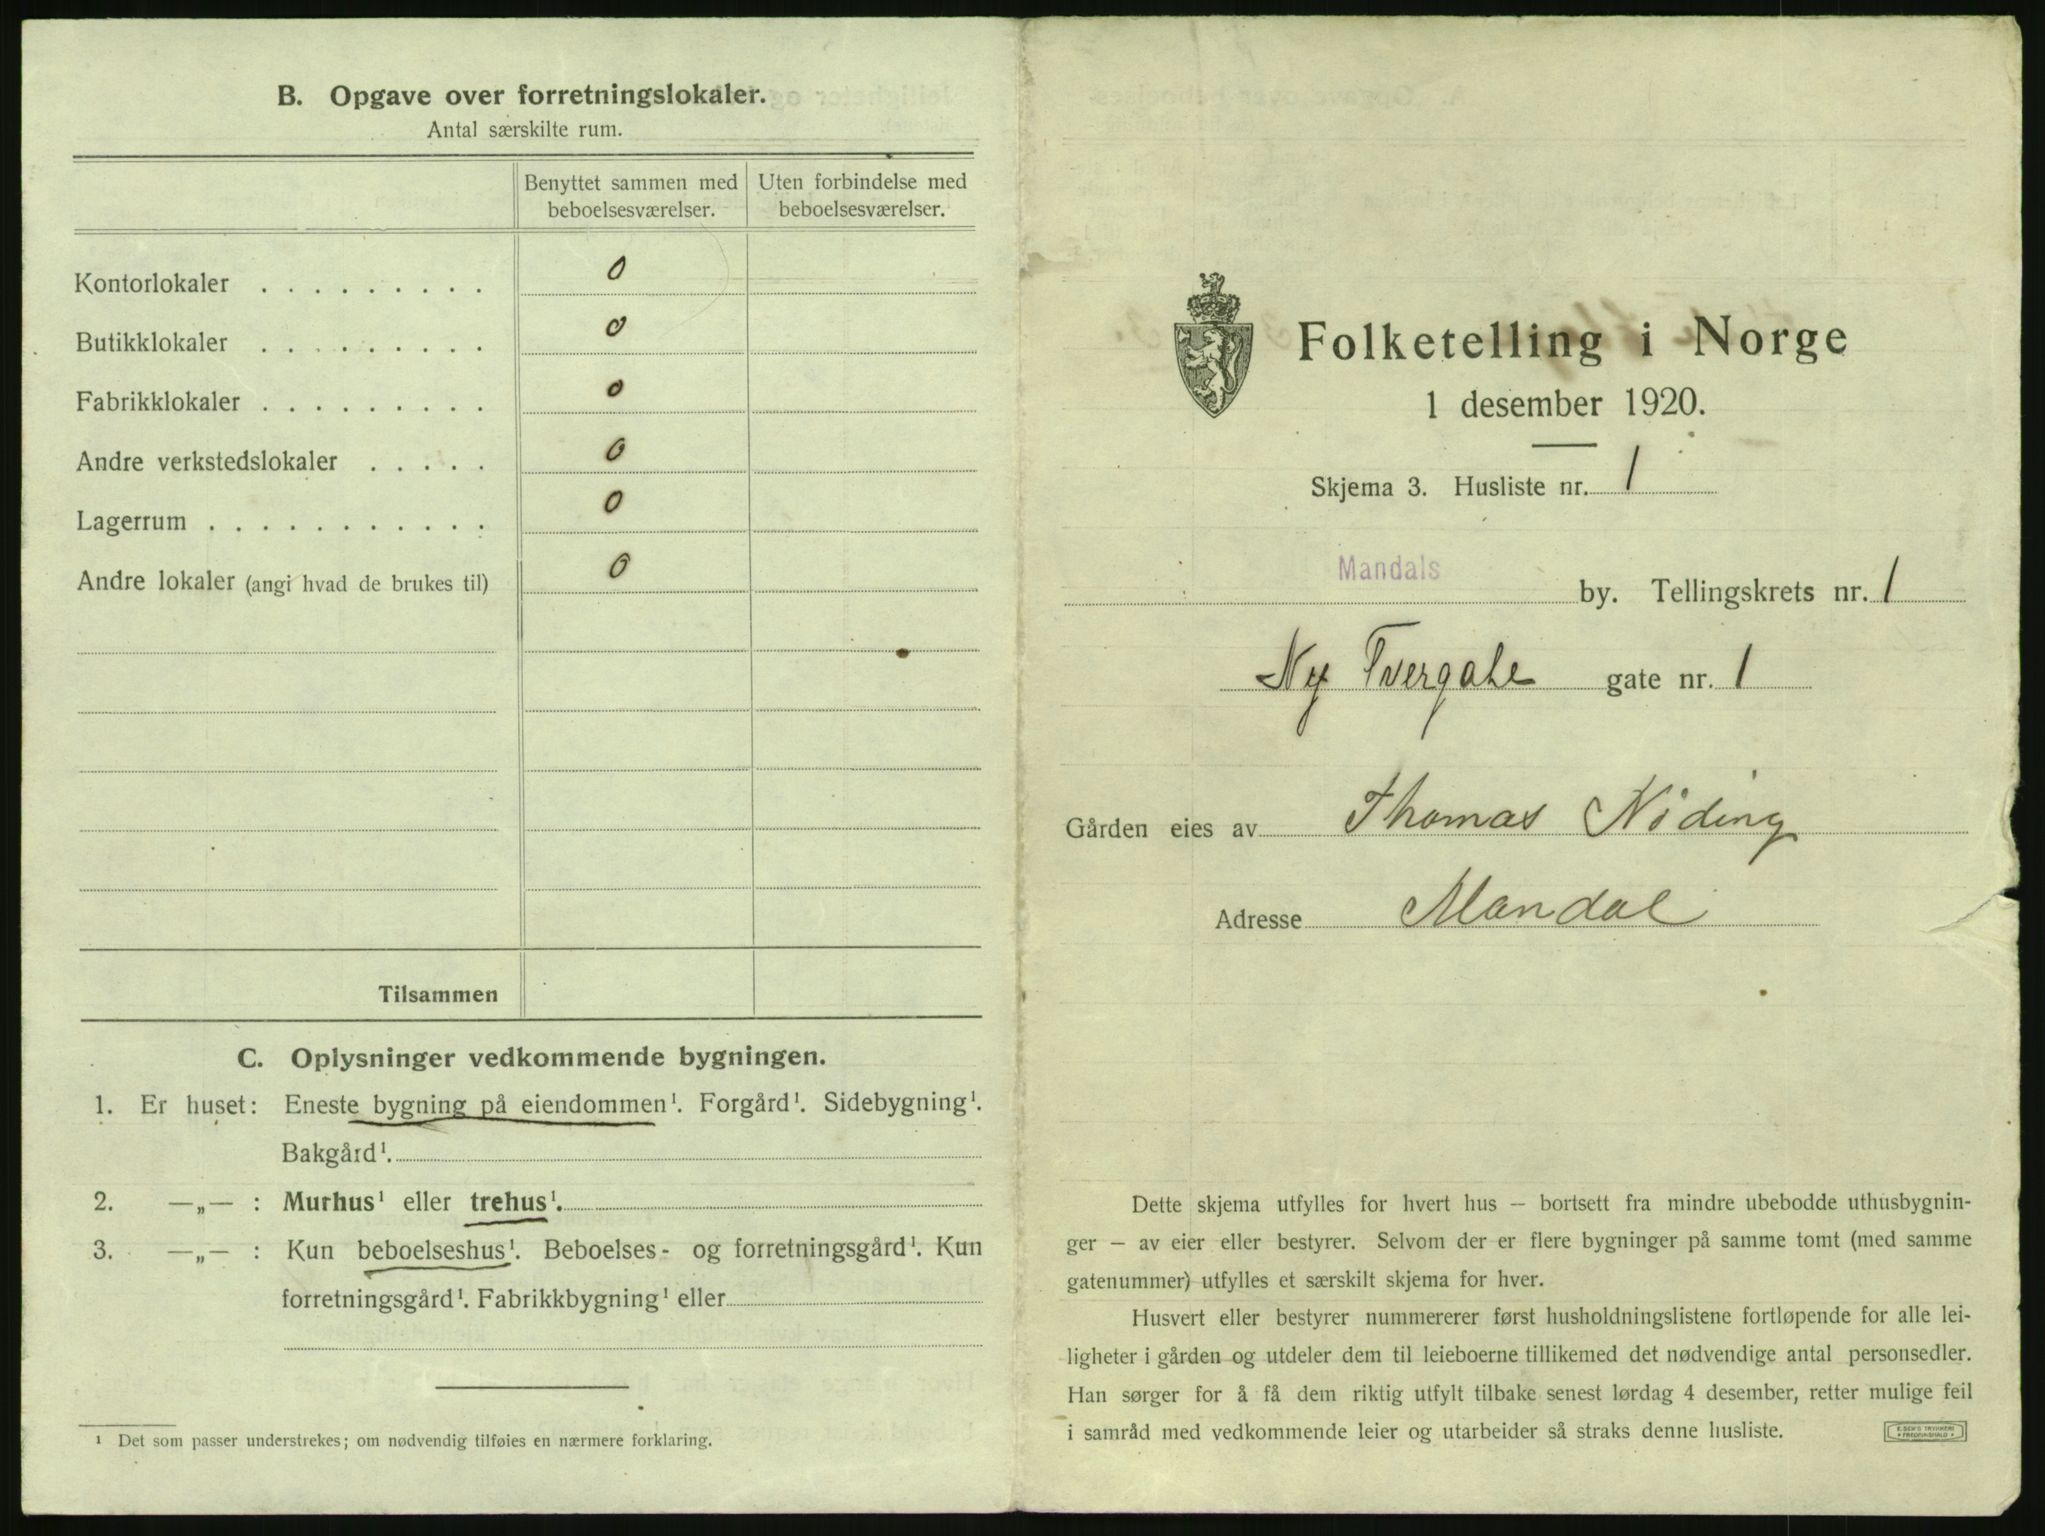 B. Opgave over forretningslokaler.
Antal særskilte rum.
Benyttet sammen med beboelsesværelser.
Uten forbindelse med beboelsesværelser.
Kontorlokaler . . . . . . . . . 0
Butikklokaler . . . . . . . . . 0
Fabrikklokaler . . . . . . . . . 0
Andre verkstedslokaler . . . . . 0
Lagerrum . . . . . . . . . . . 0
Andre lokaler (angi hvad de brukes til) 0
Tilsammen
C. Oplysninger vedkommende bygningen.
1. Er huset: Eneste bygning på eiendommen¹. Forgård¹. Sidebygning¹.
Bakgård¹.
2. —„— : Murhus¹ eller trehus¹.
3. —„— : Kun beboelseshus¹. Beboelses- og forretningsgård¹. Kun
forretningsgård¹. Fabrikkbygning¹ eller
¹ Det som passer understrekes; om nødvendig tilføies en nærmere forklaring.
Folketelling i Norge
1 desember 1920.
Skjema 3. Husliste nr. 1
Mandals by. Tellingskrets nr. 1
Ny Tvergate gate nr. 1
Gården eies av Thomas Nöding
Adresse Mandal
Dette skjema utfylles for hvert hus – bortsett fra mindre ubebodde uthusbygnin-
ger – av eier eller bestyrer. Selvom der er flere bygninger på samme tomt (med samme
gatenummer) utfylles et særskilt skjema for hver.
Husvert eller bestyrer nummererer først husholdningslistene fortløpende for alle lei-
ligheter i gården og utdeler dem til leieboerne tillikemed det nødvendige antal personsedler.
Han sørger for å få dem riktig utfylt tilbake senest lørdag 4 desember, retter mulige feil
i samråd med vedkommende leier og utarbeider så straks denne husliste.